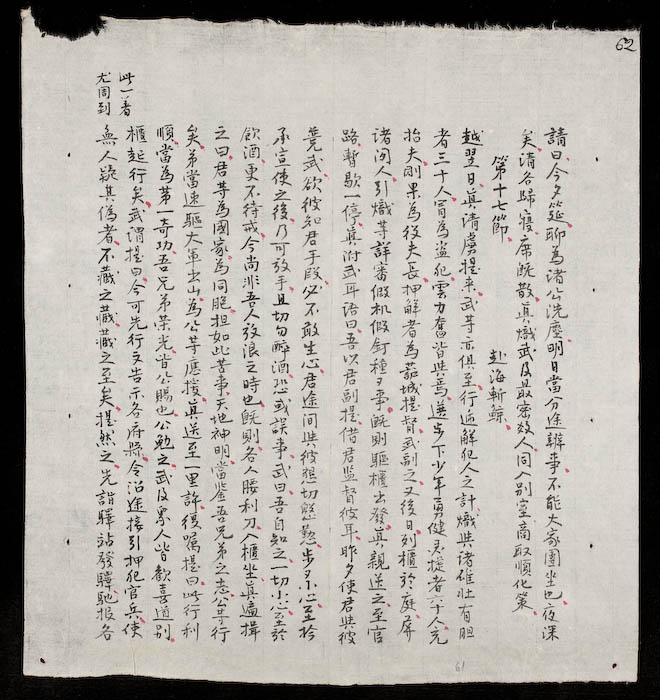 62
請曰今夕筵聊為諸公洗塵明日當分途辦事不能大家團坐也夜深
矣請各歸寢席既散真熾武及最密数人同入别室商取順化策
第十七節 赴海斬鯨
越翌日真請虜提来武等亦俱至行遞解犯人之計熾與諸雄壮有胆
者三十人冒為盗犯雲力奮皆與焉選步下少年勇健灵捷者六十人充
抬夫剛果為役夫長押解者為茹城提督武副之又後日列櫃於庭屏
諸闲人引熾等詳審假机假釘種々事既則驅櫃出發真親送之至官
路暫歇一停真附武耳语曰吾以君副提借君監督彼耳昨夕使君與彼
薨武欲彼知君手段必不敢生心君途间與彼懇切慇懃步々小心至於
承宣使之後乃可放手且切勿醉酒恐或誤事武曰吾自知之一切小心至於
飲酒更不待戒今尚非吾人放浪之時也既則各人腰利刀入櫃坐真遍揖
之曰君等為國家為同胞担如此苦事天地神明當鉴吾兄弟之志公等行
矣弟當速驅大軍出山為公等應援真送至一里許復嘱提曰此行利
順當為第一奇功吾兄弟荣光皆公賜也公勉之武及眾人皆歡喜道别
櫃起行矣武謂提曰今可先行文告示各府縣令沿途接引押犯官兵使
無人疑其偽者不藏之藏藏之至矣提然之先詣驛站發驛馳报各
此一着
尤周到
61